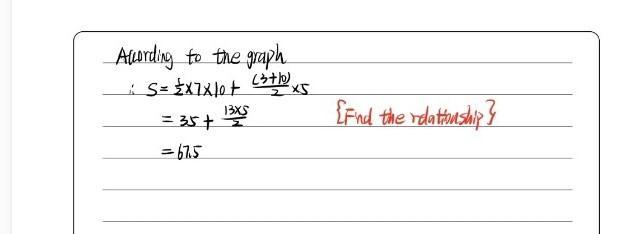 According to the graph
∴ S = 1/2 × 7 × 10 + (3+10)/2 × 5
= 35 + 13×5/2 {Find the relationship}
= 67.5